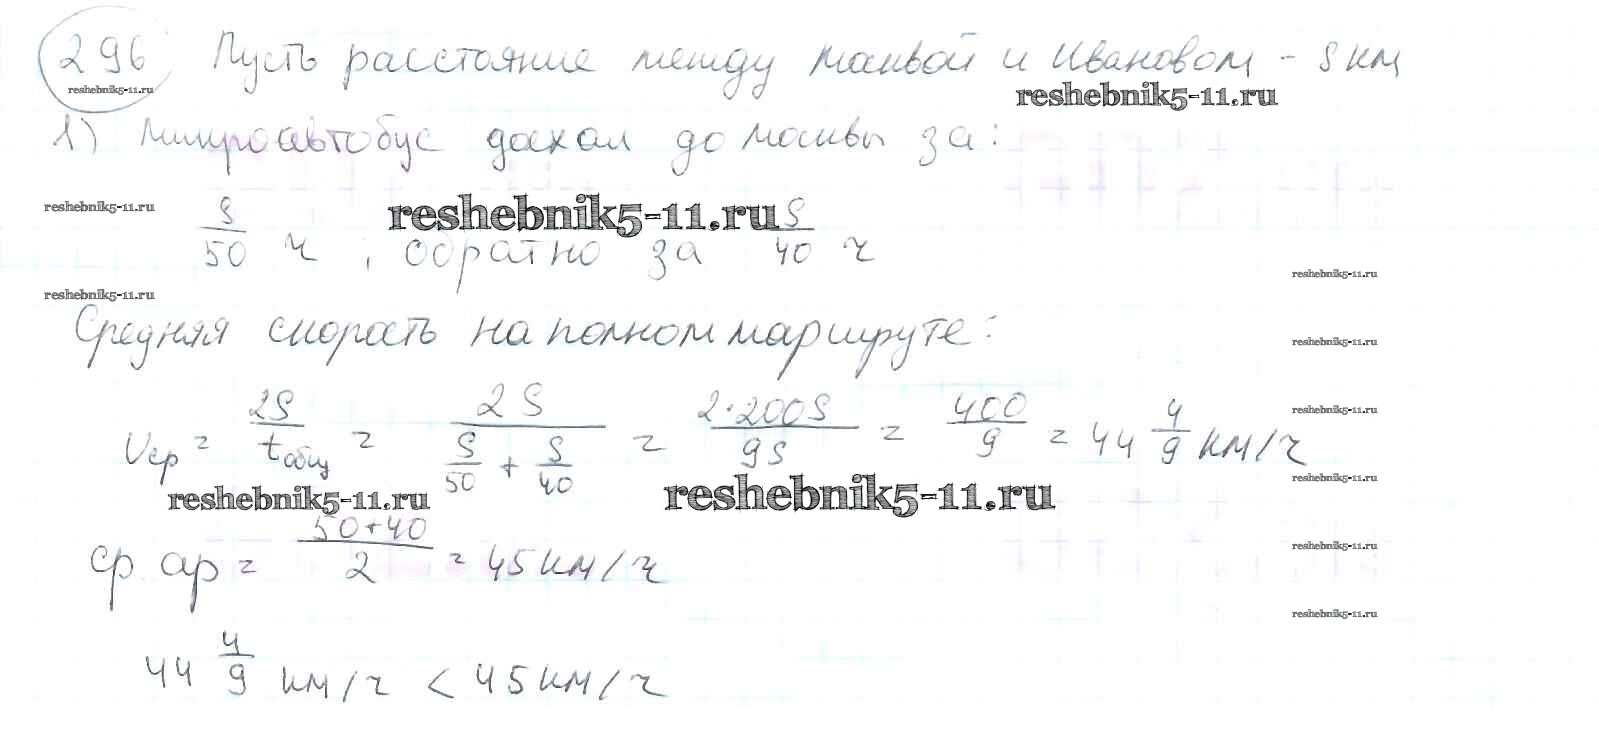 296 Пусть расстояние между Москвой и Ивановом - S км
reshebnik5-11.ru
reshebnik5-11.ru
1) Микроавтобус доехал до Москвы за:
reshebnik5-11.ru
reshebnik5-11.ru
S/50 ч, обратно за S/40 ч
reshebnik5-11.ru
reshebnik5-11.ru
Средняя скорость на полном маршруте:
reshebnik5-11.ru
Vср = 2S/tобщ = 2S/(S/50 + S/40) = 2·200S/9S = 400/9 = 44 4/9 км/ч
reshebnik5-11.ru
reshebnik5-11.ru
reshebnik5-11.ru
reshebnik5-11.ru
ср ар = (50+40)/2 = 45 км/ч
reshebnik5-11.ru
reshebnik5-11.ru
44 4/9 км/ч < 45 км/ч